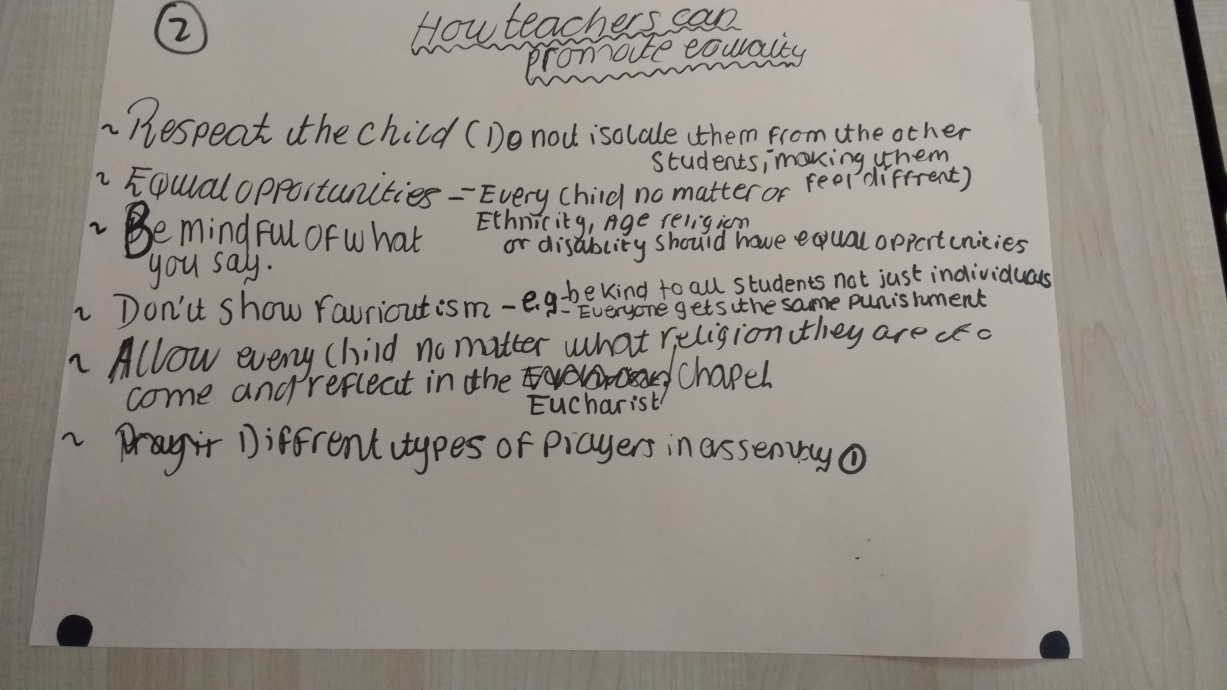 2
How teachers can
promote equality
~ Respect the child (Do not isolate them from the other
students, making them
feel diffrent)
~ Equal opportunities - Every child no matter of
Ethnicity, Age religion
or disablity should have equal opportunities
~ Be mindful of what
you say.
~ Don't show favrioutism - e.g - be kind to all students not just individuals
- Everyone gets the same punishment
~ Allow every child no matter what religion they are etc
come and reflect in the Chapel
Eucharist
~ Diffrent types of Prayers in assembly 1